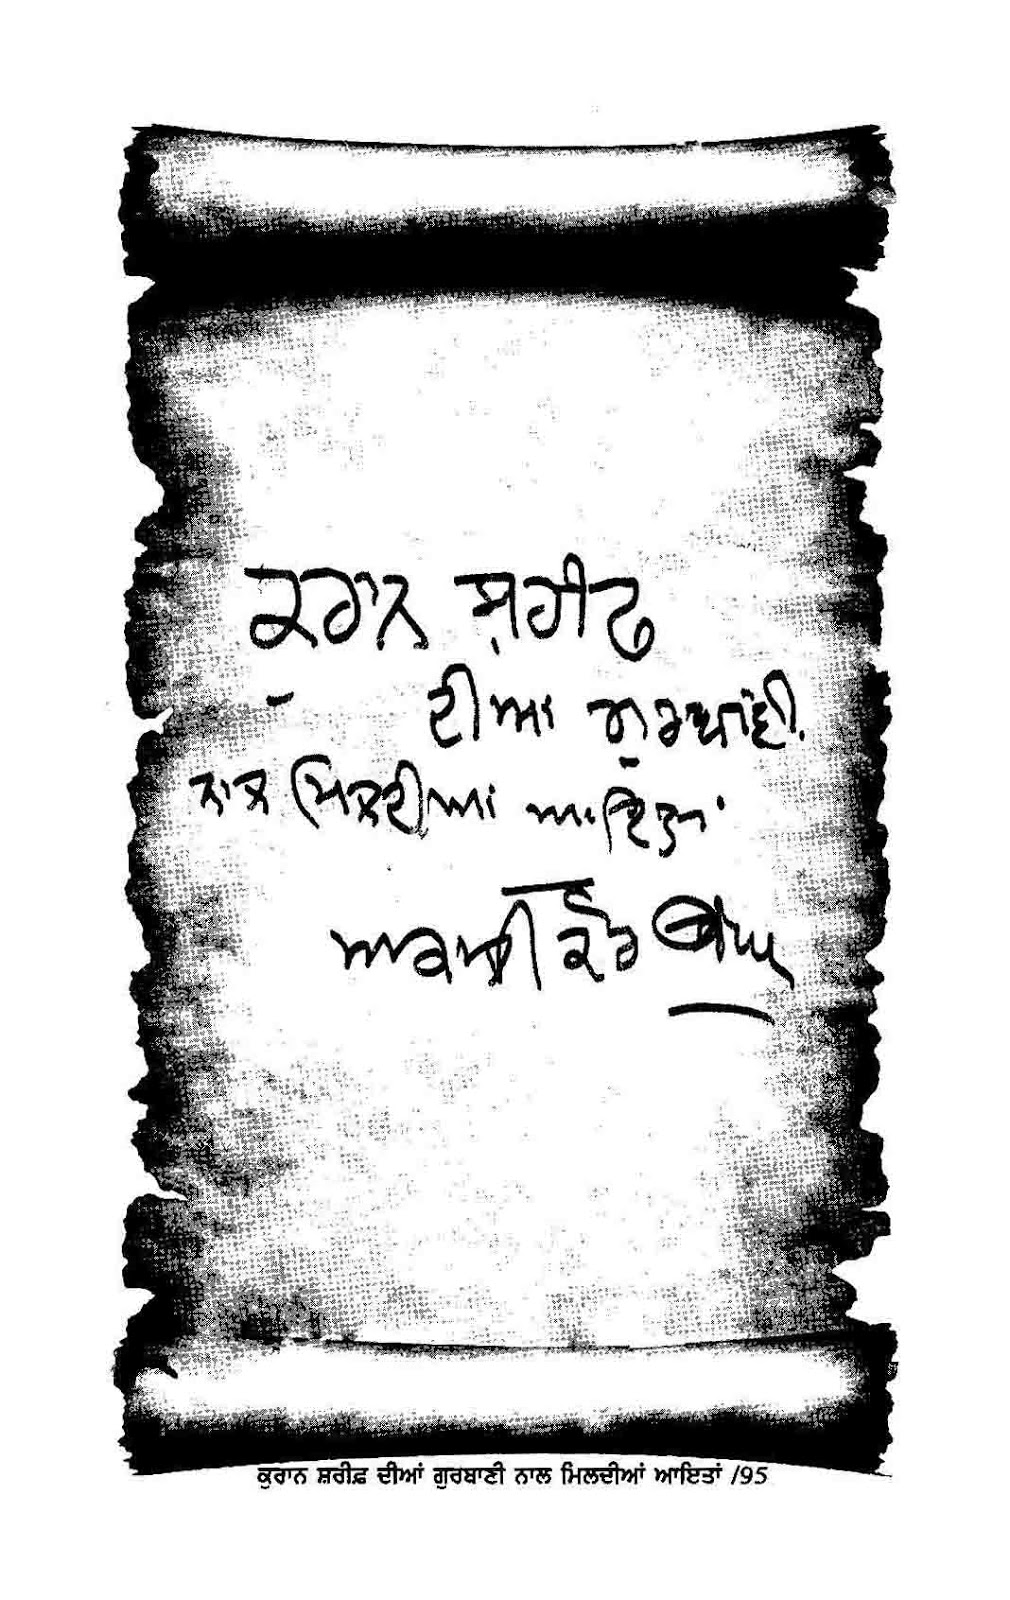 ਕੁਰਾਨ ਸ਼ਰੀਫ
ਦੀਆਂ ਗੁਰਬਾਣੀ
ਨਾਲ ਮਿਲਦੀਆਂ ਆਇਤਾਂ
ਕੌਰ
ਕੁਰਾਨ ਸ਼ਰੀਫ਼ ਦੀਆਂ ਗੁਰਬਾਣੀ ਨਾਲ ਮਿਲਦੀਆਂ ਆਇਤਾਂ /95